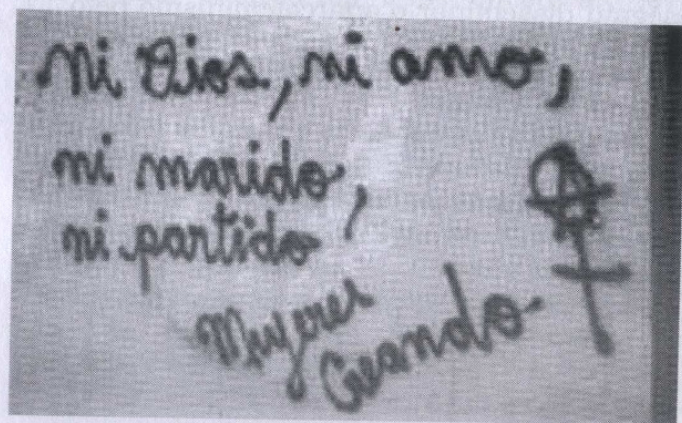 Ni Dios, ni amo,
ni marido,
ni partido
Mujeres
Creando